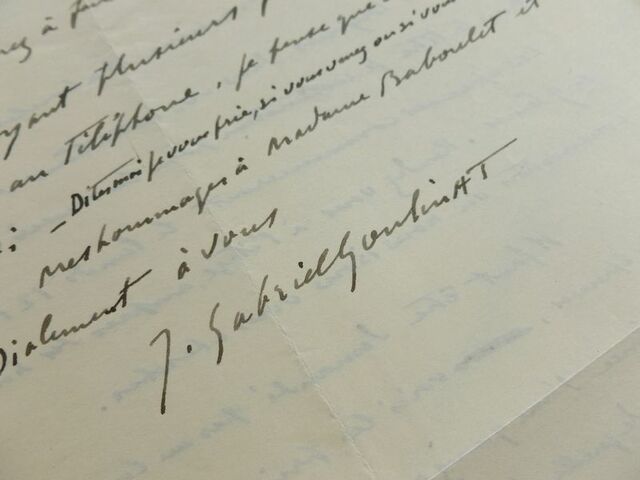 à
yant plusieurs
au Téléphone, je pense que
- Dites moi je vous prie, si vous venez ou si vous
mes hommages à Madame Baboulet et
Dialement à vous
J. Gabriel GoulinAT